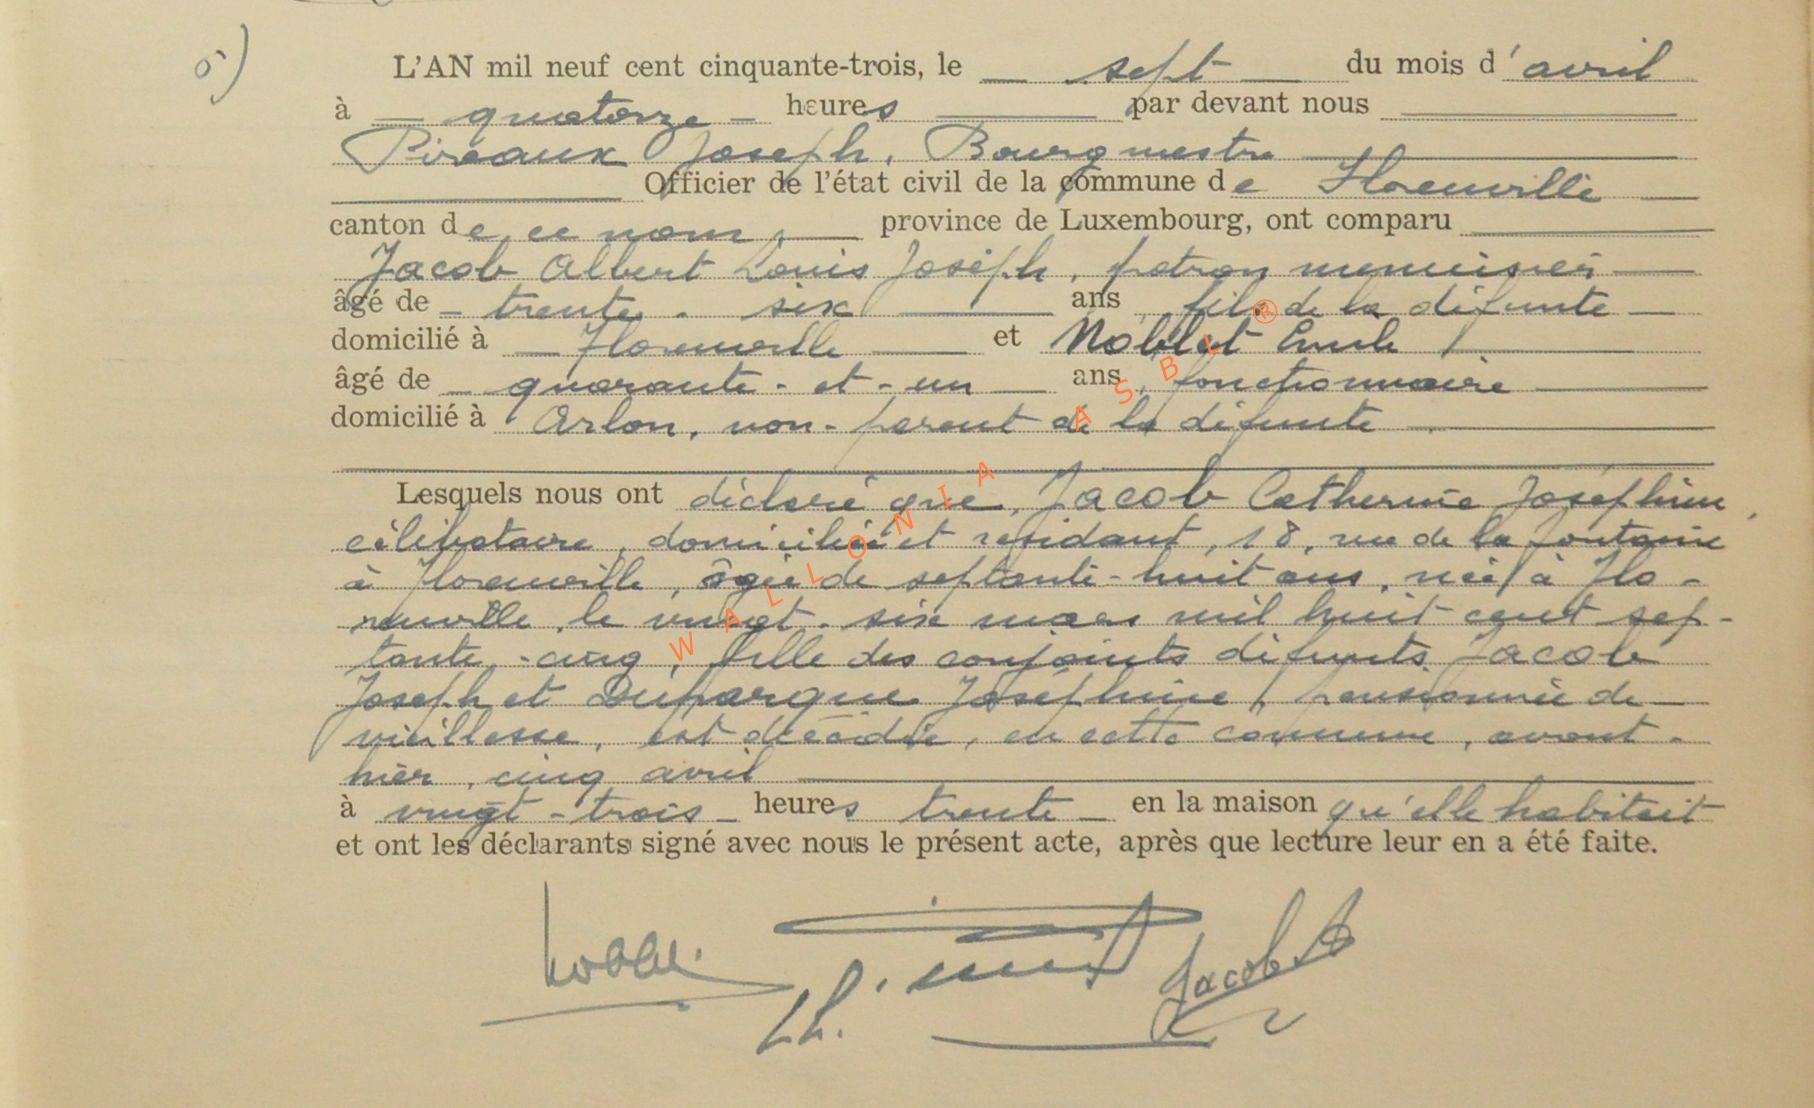 5)
L'AN mil neuf cent cinquante-trois, le sept du mois d'avril
à quatorze heures par devant nous
Pireaux Joseph, Bourgmestre
Officier de l'état civil de la commune de Florenville
canton de ce nom, province de Luxembourg, ont comparu
Jacob Albert Louis Joseph, patron menuisier
âgé de trente-six ans, fils de la défunte
domicilié à Florenville et Noblet Emile,
âgé de quarante-et-un ans, fonctionnaire
domicilié à Arlon, non-parent de la défunte.
Lesquels nous ont déclaré que, Jacob Catherine Joséphine,
célibataire, domiciliée et résidant, 18, rue de la fontaine
à Florenville, âgée de septante-huit ans, née à Flo-
renville, le vingt-six mars mil huit cent sep-
tante-cinq, fille des conjoints défunts Jacob
Joseph et Joséphine, pensionnée de
vieillesse, est décédée, en cette commune, avant-
hier, cinq avril
à vingt-trois heures trente en la maison qu'elle habitait
et ont les déclarants signé avec nous le présent acte, après que lecture leur en a été faite.
Jacob A
WALLONIA ASBL ®